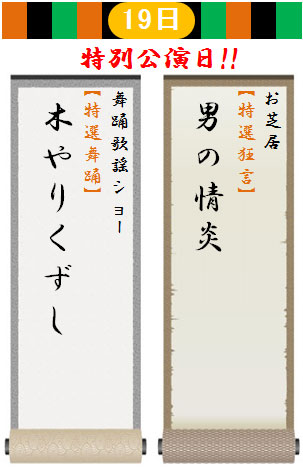 19日
特別公演日!!
お芝居
【特選狂言】
男の情炎
舞踊歌謡ショー
【特選舞踊】
木やりくずし